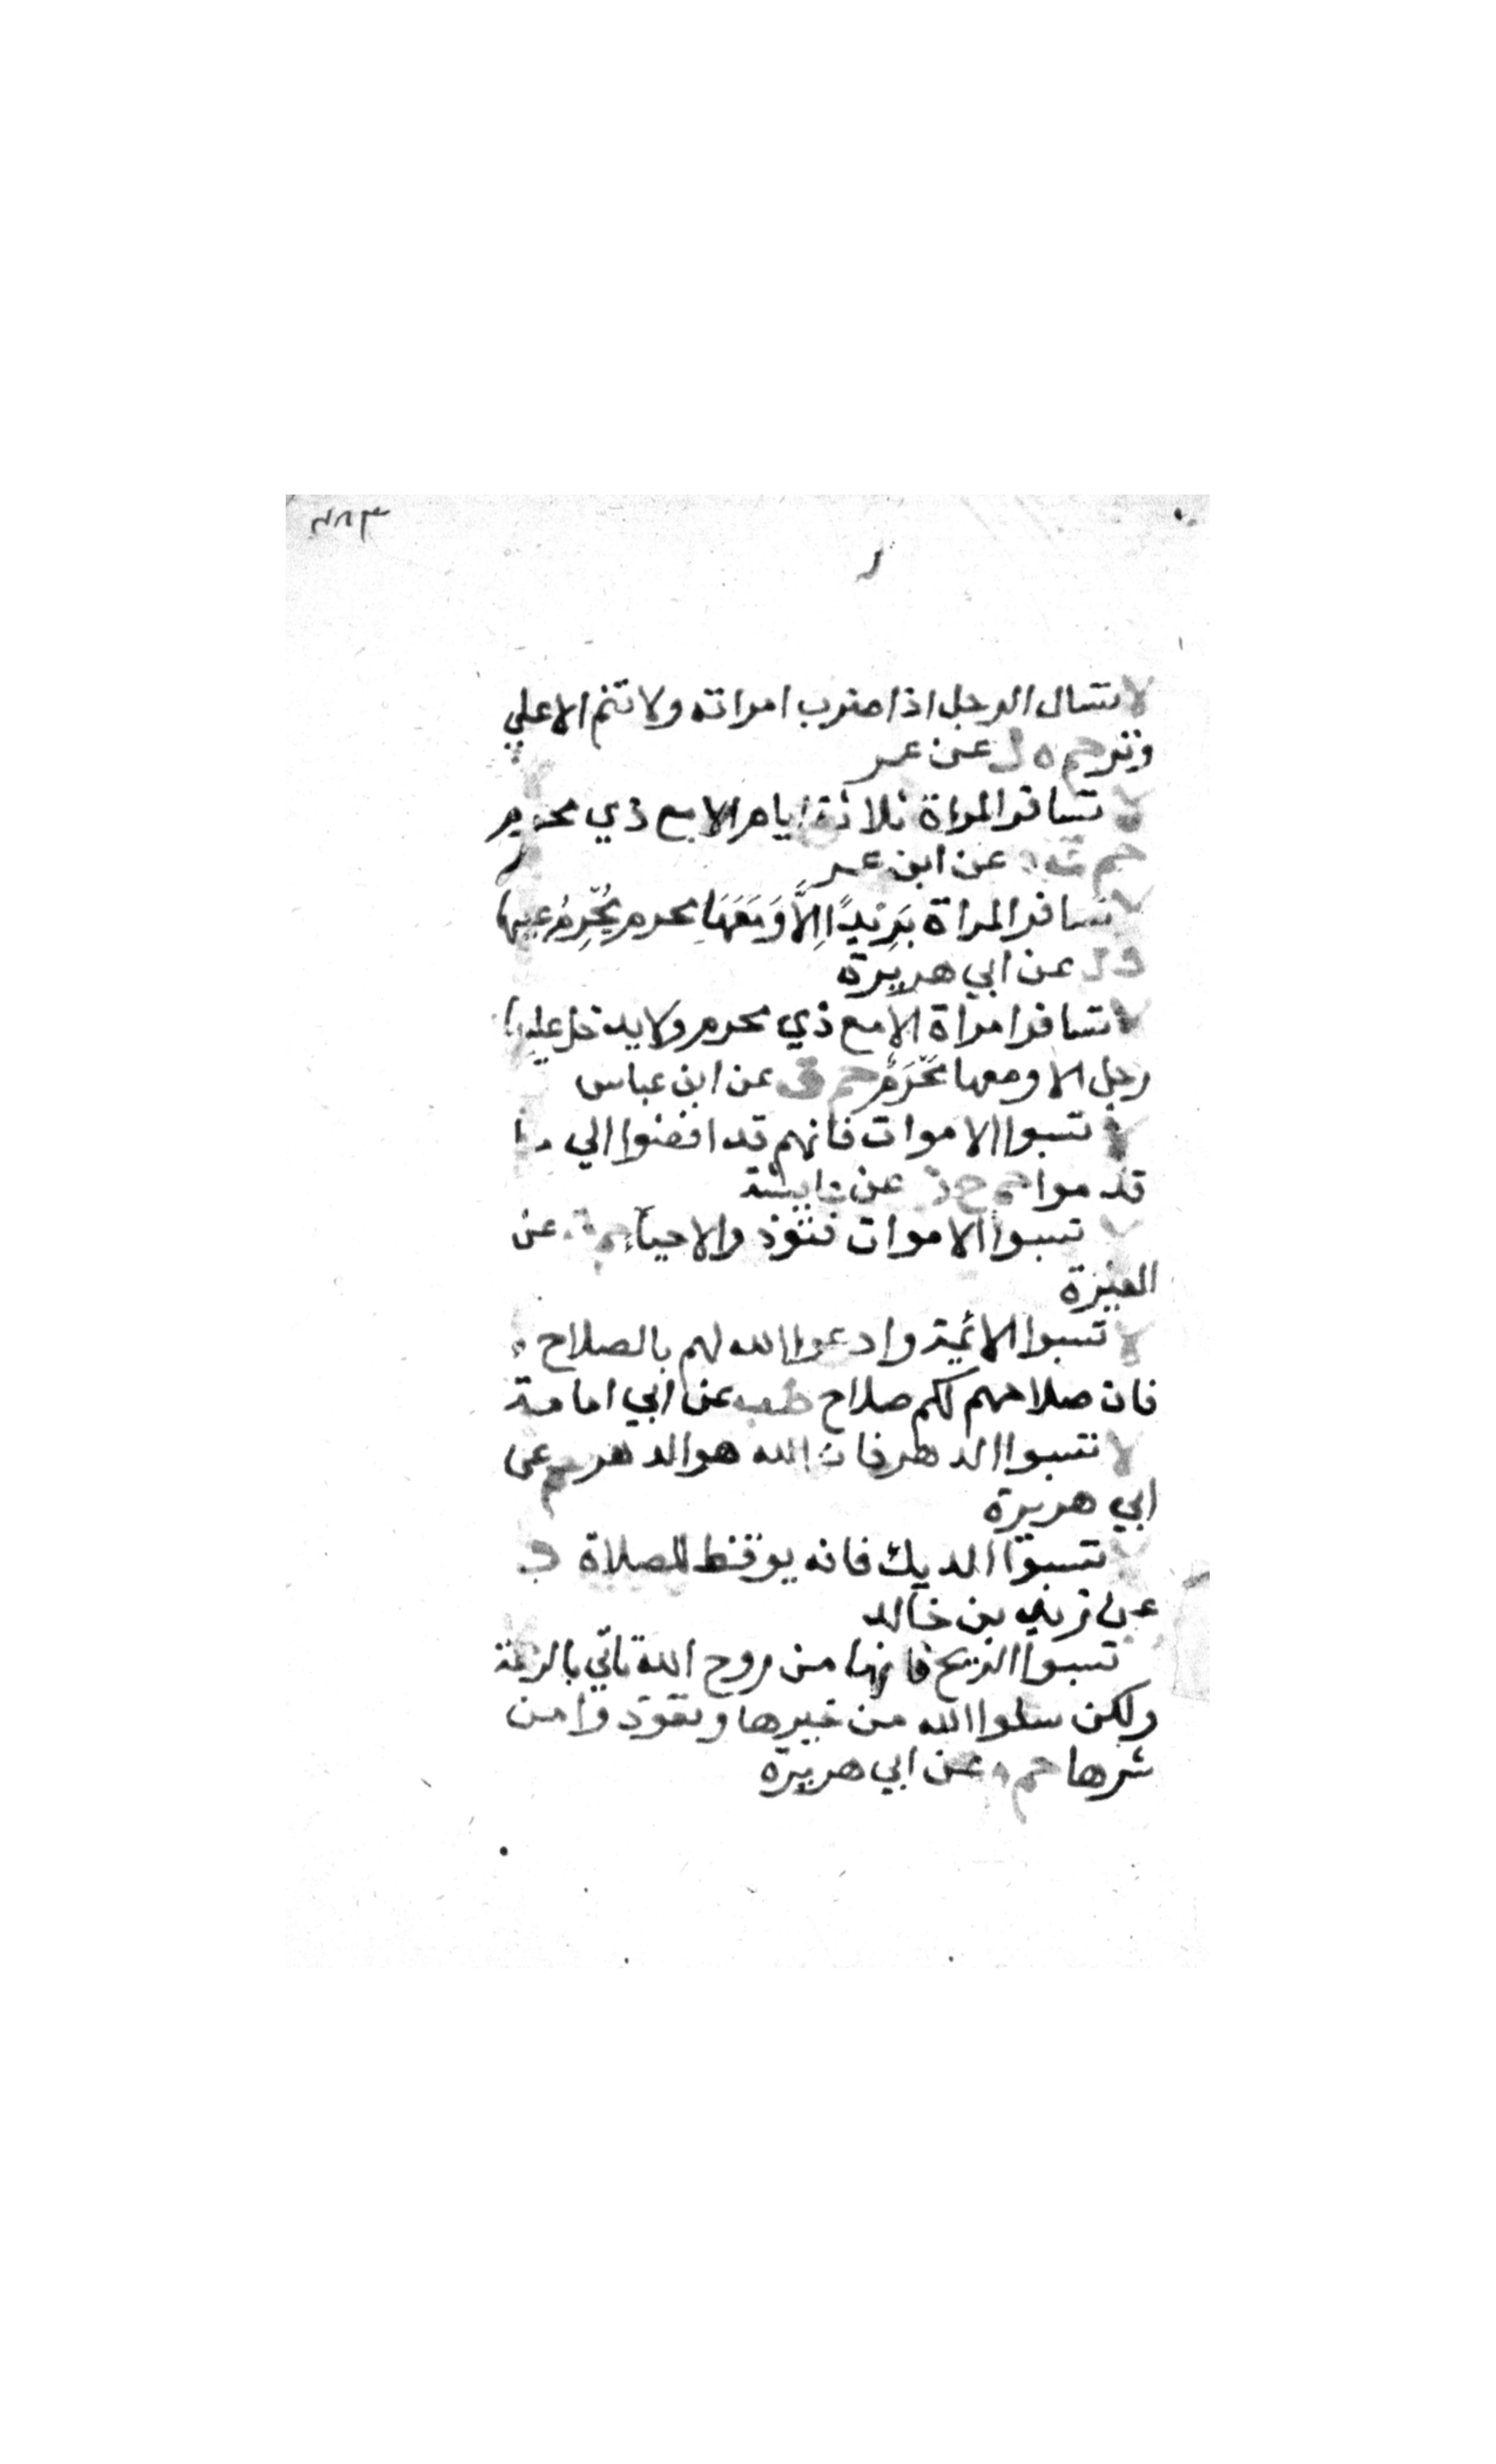 لا تسال الرجل اذا ضرب امراته ولا تنم الا علي
وتر حم ه ك عن عمر
لا تسافر المراة ثلاثة ايام الا مع ذي محرم
حم ق د عن ابن عمر
لا تسافر المراة بَرِيْدًا اِلاَّ وَمَعَهَا محرم يُحْرِمُ عليها
د ك عن ابي هريرة
لا تسافر امراة الا مع ذي محرم ولا يدخل عليها
رجل الا ومعها مَحْرَمٌ حم ق عن ابن عباس
لا تسبوا الاموات فانهم قد افضوا الي ما
قدموا حم خ ن عن عايشة
لا تسبوا الاموات فتؤذوا الاحيآء حم ت عن
المغيرة
لا تسبوا الائمة وادعوا الله لهم بالصلاح
فان صلاحهم لكم صلاح طب عن ابي امامة
لا تسبوا الدهر فان الله هو الدهر م عن
ابي هريرة
لا تسبوا الديك فانه يوقظ للصلاة د
عن زيد بن خالد
لا تسبوا الريح فانها من روح الله تاتي بالرحمة
ولكن سلوا الله من خيرها وتعوذوا من
شرها حم ه عن ابي هريرة